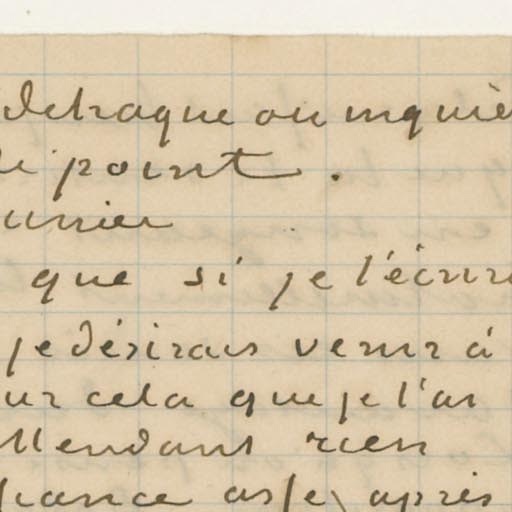 detraque ou inquiè
point.
unier
que si je t'écrire
je désirais venir à
ur cela que je t'ai
ttendant rien
fiance assez après